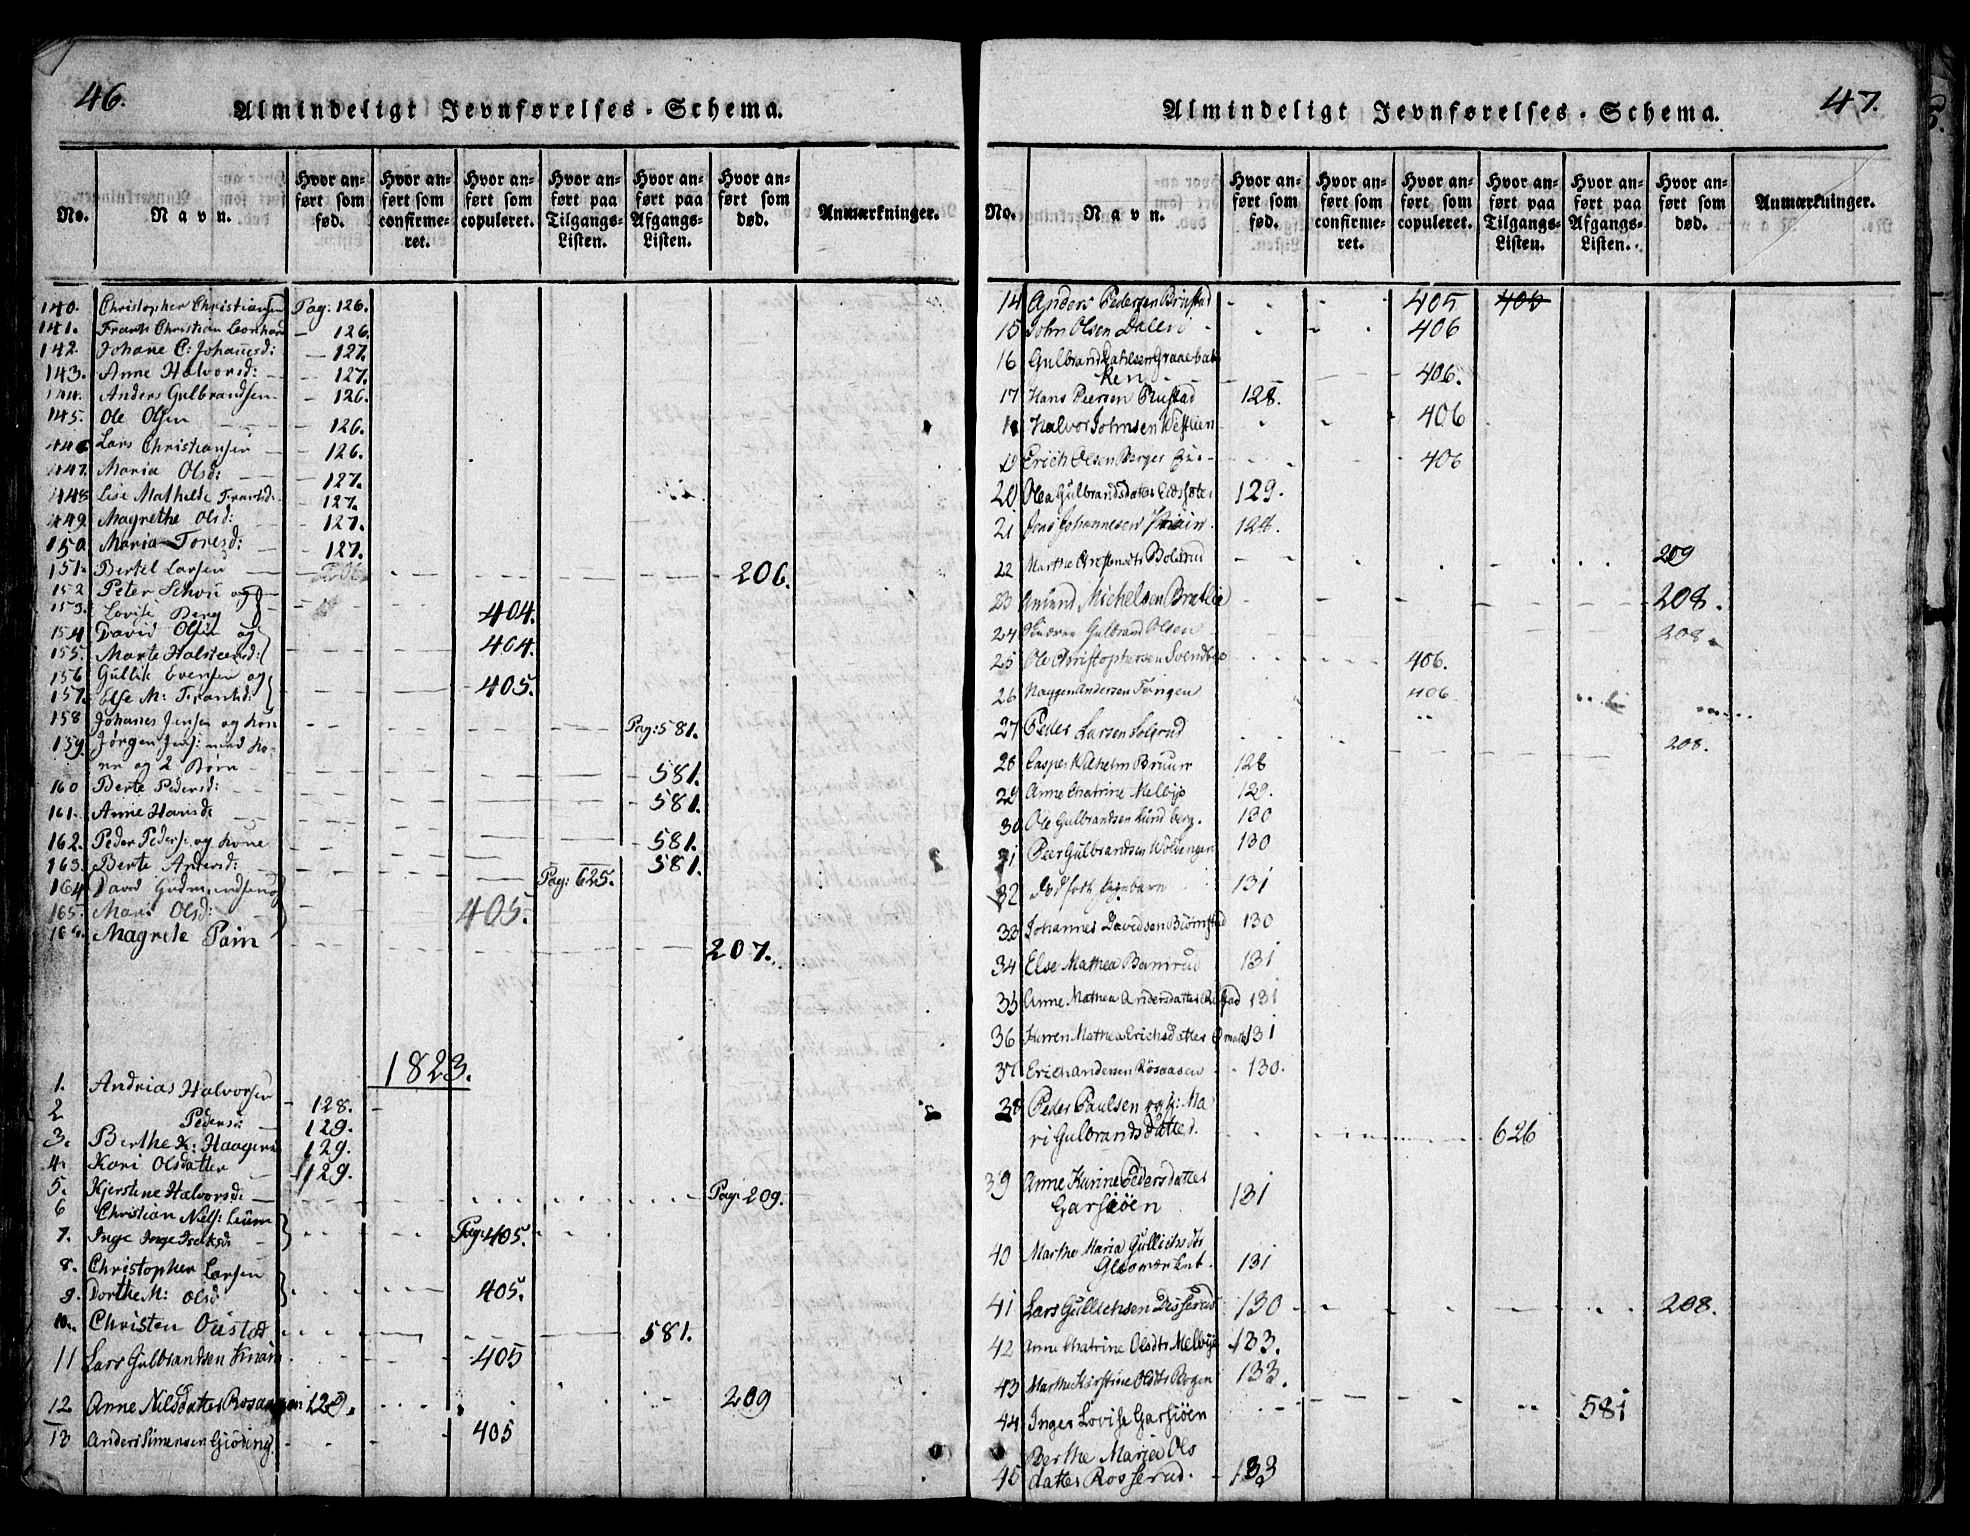 46.
Almindeligt Jevnførelses-Schema.
No.
Navn.
Hvor anført som fød.
Hvor anført som confirmeret.
Hvor anført som copuleret.
Hvor anført paa Tilgangs-Listen.
Hvor anført paa Afgangs-Listen.
Hvor anført som død.
Anmærkninger.
140. Christopher Christiansen Pag: 126.
141. Frants Christian Leonhard — 126.
142. Johane C: Johanesd: — 127.
143. Anne Halvorsd: — 127.
144. Anders Gulbrandsen — 126.
145. Ole Olsen 126.
146 Lars Christiansen — 126.
147. Maria Olsd: — 127.
148 Lise Mathilde Frantsd. 127.
149. Magrethe Olsd: — 127.
150 Maria Toresd: — 127.
151. Bertel Larsen 206.
152 Peter Schou og
153. Lovise Berg 404.
154 David Olsen og
155. Marte Halsteensd: 404.
156 Gullik Evensen og
157. Else M: Frantsd: 405.
158 Johanes Jensen og Kone Pag: 581.
159. Jørgen Jens: med Ko-
ne og 2 Børn 581.
160 Berte Pedersd: 581.
161. Anne Hansd:
162. Peder Peders: og Kone 581.
163. Berte Andersd: 581.
164 David Gudmundsen og Pag: 625.
165. Mari Olsd: 405.
166. Magrete Pain 207.
1823.
1. Andrias Halvorsen 128.
2 Pedersd: 129.
3. Berthe K: Haagens 129.
4. Kari Olsdatter 129.
5. Kjerstine Halvorsd: Pag: 209.
6 Christian Niels: Lium
7. Inge Inge Isaksd: Pag: 405.
8. Christopher Larsen
9. Dorthe M: Olsd: 405.
10. Christen Oustad 581.
11 Lars Gulbrandsen Knain 405
12 Anne Nilsdatter Rosaagen 129. 209
13 Anders Simensen Gjøding 405
47.
Almindeligt Jevnførelses-Schema.
No.
Navn.
Hvor anført som fød.
Hvor anført som confirmeret.
Hvor anført som copuleret.
Hvor anført paa Tilgangs-Listen.
Hvor anført paa Afgangs-Listen.
Hvor anført som død.
Anmærkninger.
14 Anders Pedersen Brustad 405 406
15 John Olsen Dalen 406
16 Gulbrand Dahlsen Graaebak
ken 406.
17 Hans Peersen Rustad 128.
18 Halvor Johnsen Vestlien 406
19 Erich Olsen Berger 406
20 Olea Gulbrandsdatter 129.
21 Jens Johannesen Knain. 124.
22 Marthe Bolsrud 209
23 Amund Michelsen Bratlie 208.
24 Gulbrand Olsen 208
25 Ole Christophersen Svendbye 406.
26 Haagen Andersen Tangen 406
27 Peder Larsen Solgrud 208.
28 Casper Wilhelm Bruun 128
29 Anne Chatrine Melbye 129.
30 Ole Gulbrandsen Lundberg. 130
31 Peer Gulbrandsen Woldengen 130
32 131
33 Johannes Davidsen Biømstad 130
34 Else Mathea Bamrud 131
35 Anne Mathea Andersdatter Rustad 131
36 Karren Mathea Erichsdatter 131
37 Erich Andersen Rosaasen 130.
38 Peder Paulsen og k: Ma
ri Gulbrandsdatter. 626
39 Anne Karine Pedersdatter
Garsiøen 131
40 Marthe Maria Gullichsdtr
131
41 Lars Gullichsen Disserud 130 208.
42 Anne Chatrine Olsdtr Melbye 133.
43 Marthe Kirstine Olsdtr Bergen 133.
44 Inger Lovise Garsiøen 581
45 Berthe Maria Ols
datter Rosserud. 133